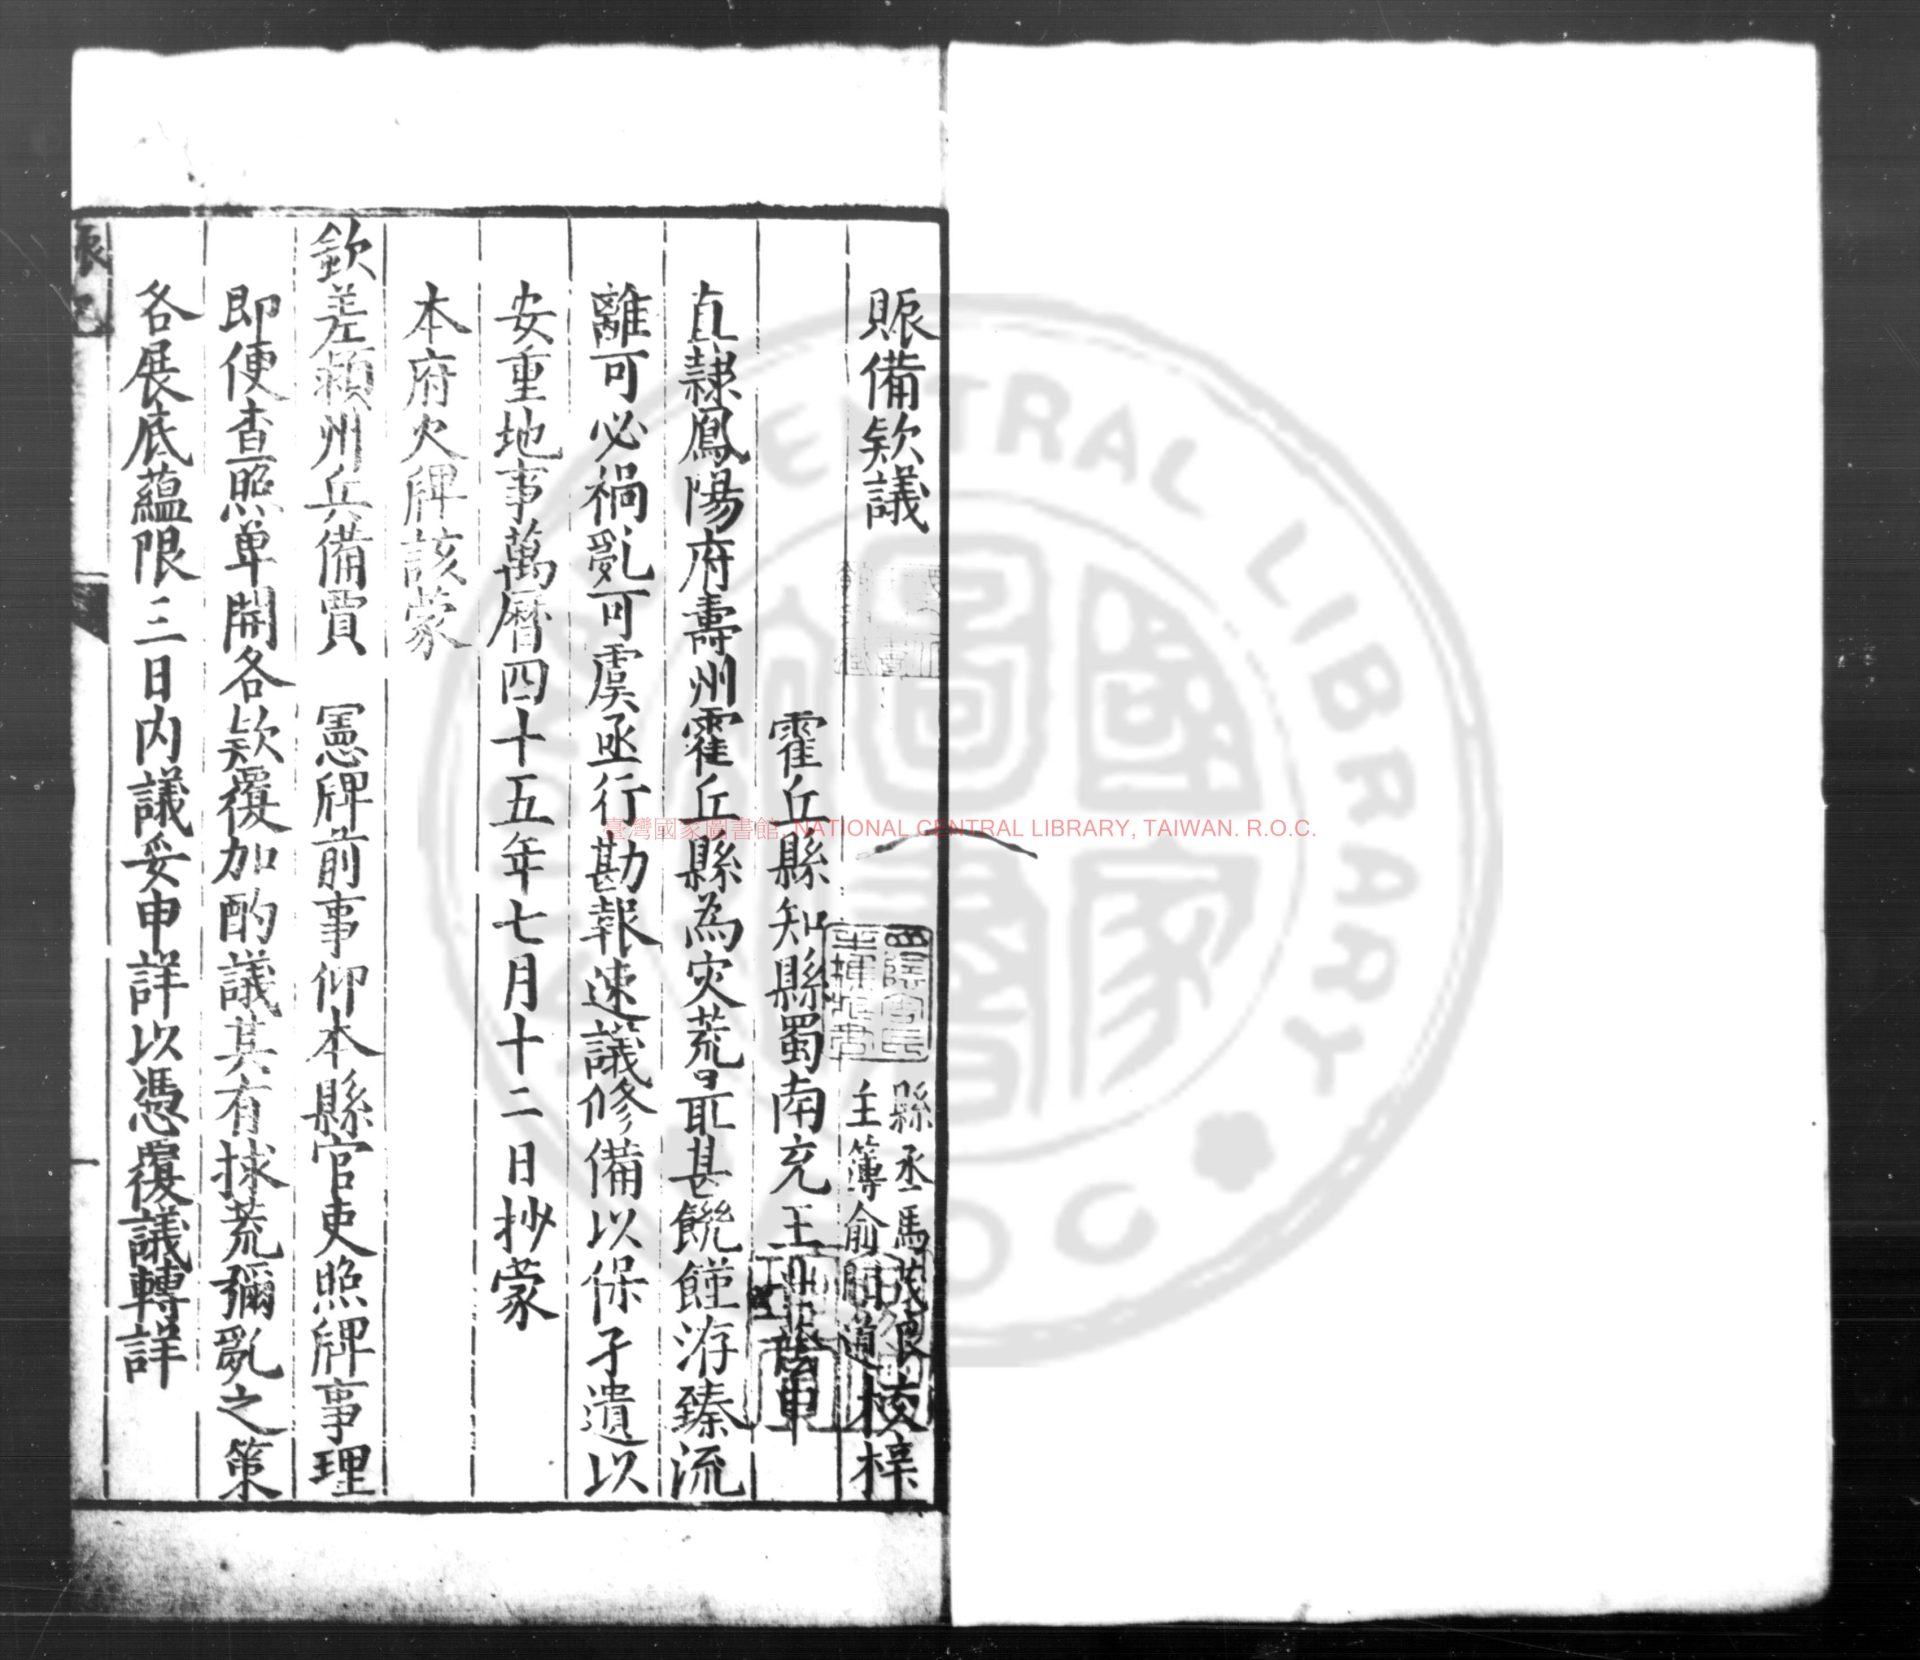 賑備欵議
縣丞馬茂良
主簿俞道
校梓
霍丘縣知縣蜀南充王
直隷鳳陽府壽州霍丘縣為灾荒最甚饑饉洊臻流
離可必禍亂可虞亟行勘報速議修備以保孑遺以
安重地事萬曆四十五年七月十二日抄蒙
本府火牌該蒙
欽差潁州兵備賈 憲牌前事仰本縣官吏照牌事理
即便查照单開各欵覆加酌議其有捄荒彌亂之策
各展底蘊限三日内議妥申詳以憑覆議轉詳
一
臺灣國家圖書館, NATIONAL CENTRAL LIBRARY, TAIWAN. R.O.C.